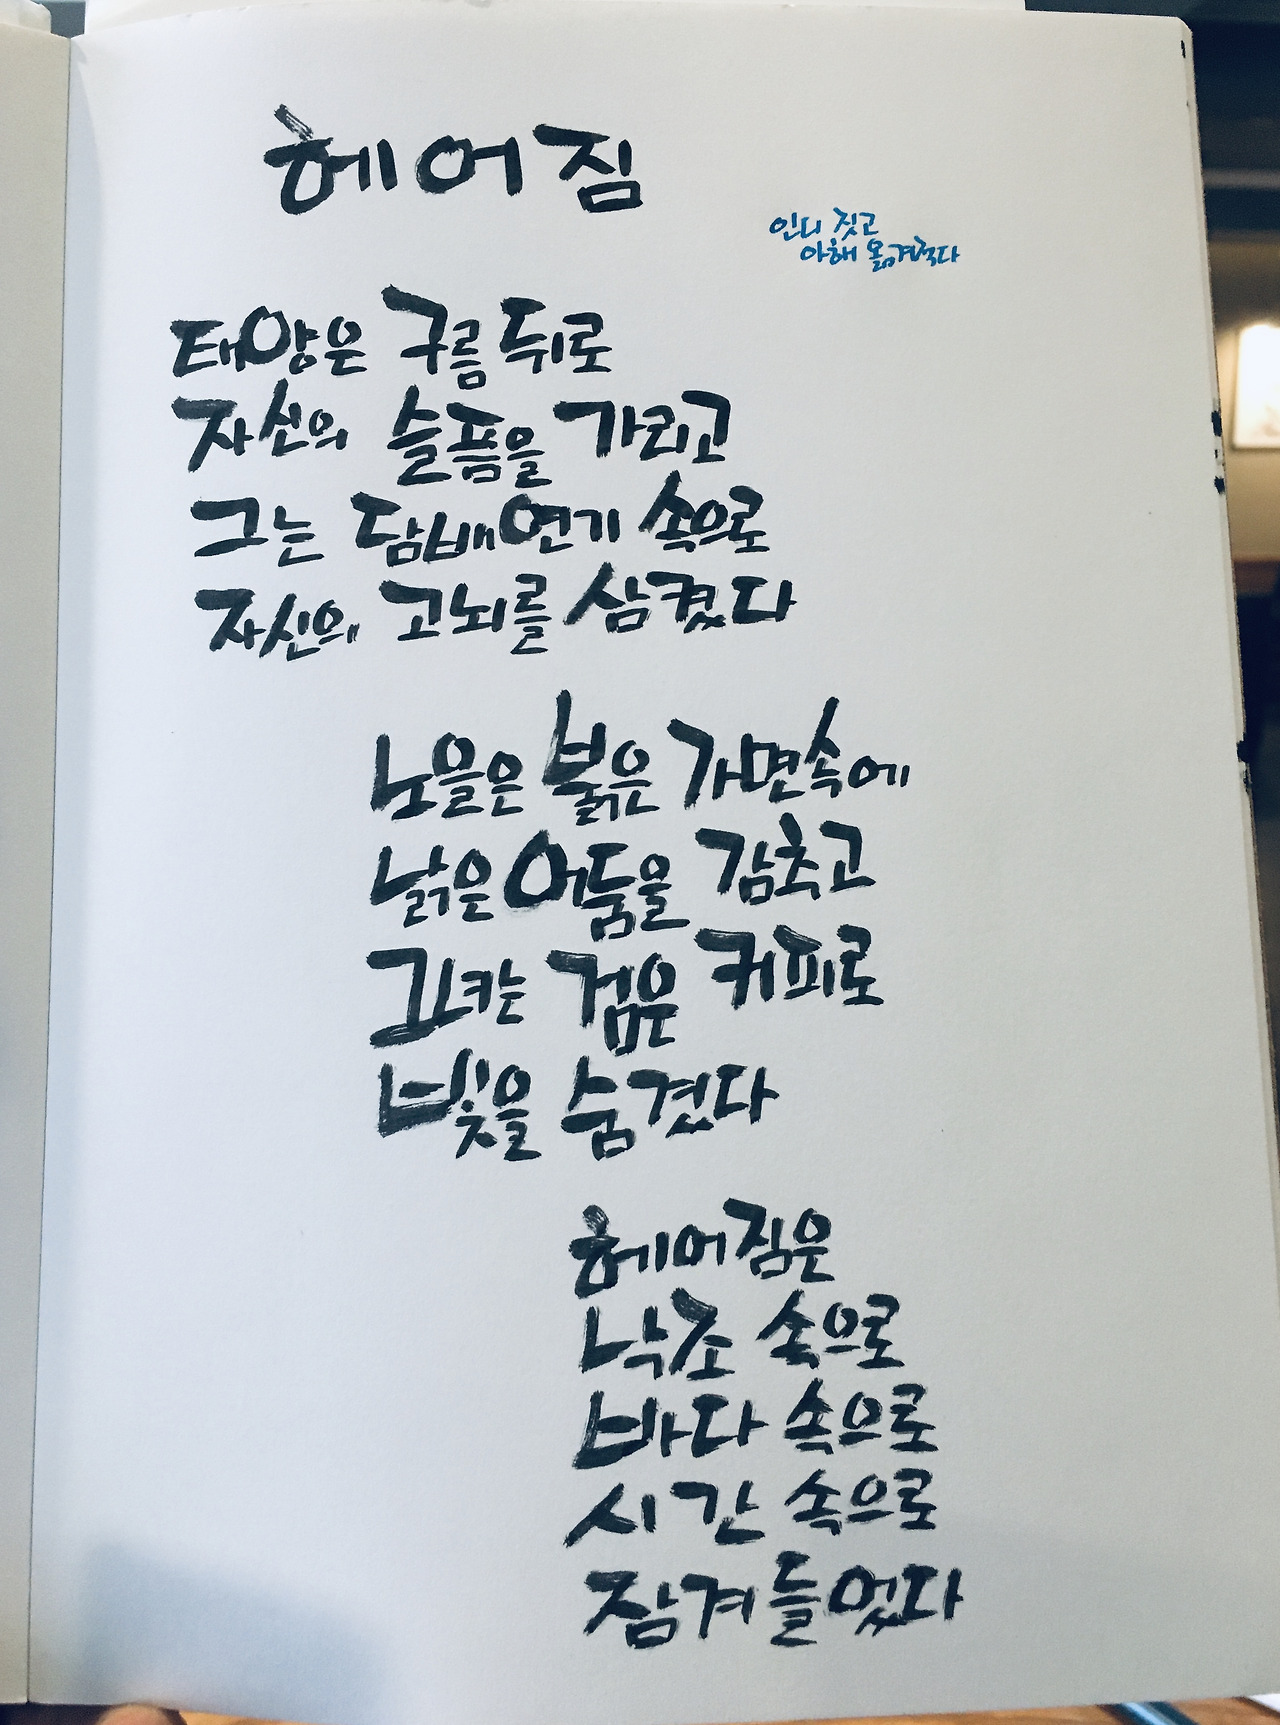 헤어짐
인디 짓고
아해 옮겨적다
태양은 구름 뒤로
자신의 슬픔을 가리고
그는 담배연기 속으로
자신의 고뇌를 삼켰다
노을은 붉은 가면속에
낡은 어둠을 감추고
검은 커피로
빛을 숨겼다
헤어짐은
낙조 속으로
바다 속으로
시간 속으로
잠겨들었다